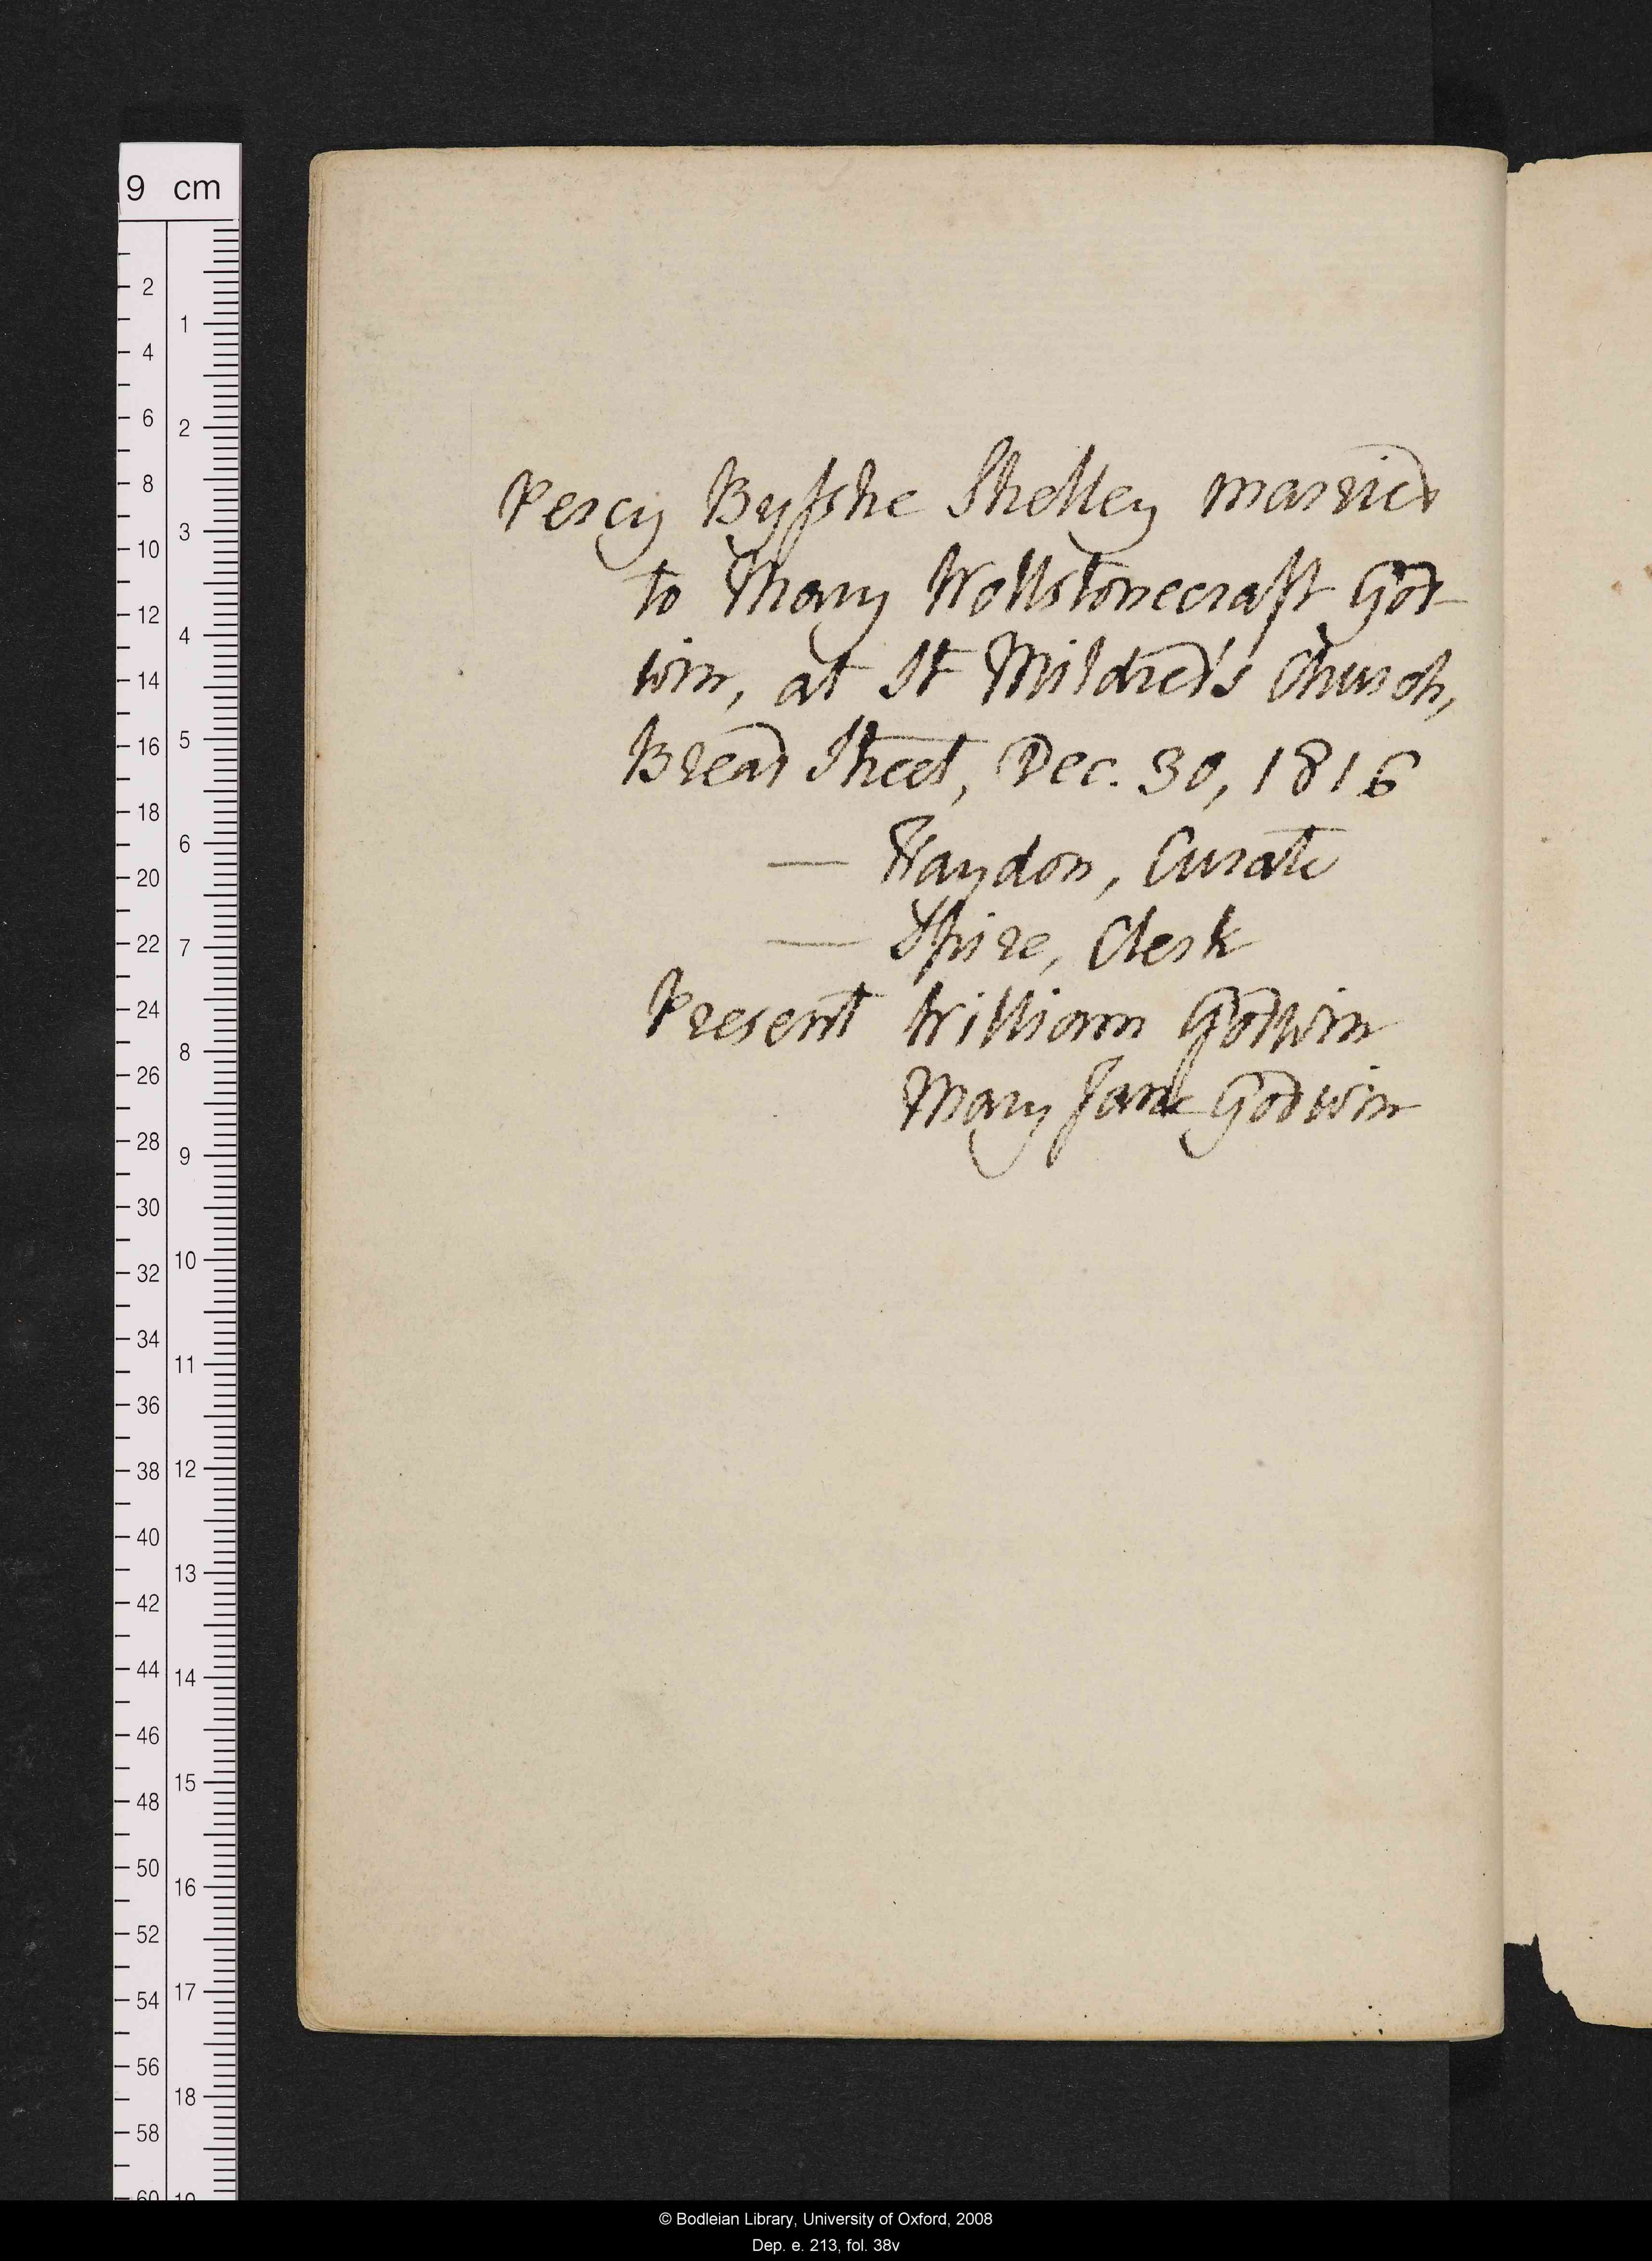 9 cm
2
4
6
8
10
12
14
16
18
20
22
24
26
28
30
32
34
36
38
40
42
44
46
48
50
52
54
56
58
60
1
2
3
4
5
6
7
8
9
10
11
12
13
14
15
16
17
18
19
Percy Bysshe Shelley married
to Mary Wollstonecraft God-
win, at St Mildred's Church,
Bread Street, Dec. 30, 1816
— Haydon, Curate
— Spire, Clerk
Present William Godwin
Mary Jane Godwin
© Bodleian Library, University of Oxford, 2008
Dep. e. 213, fol. 38v